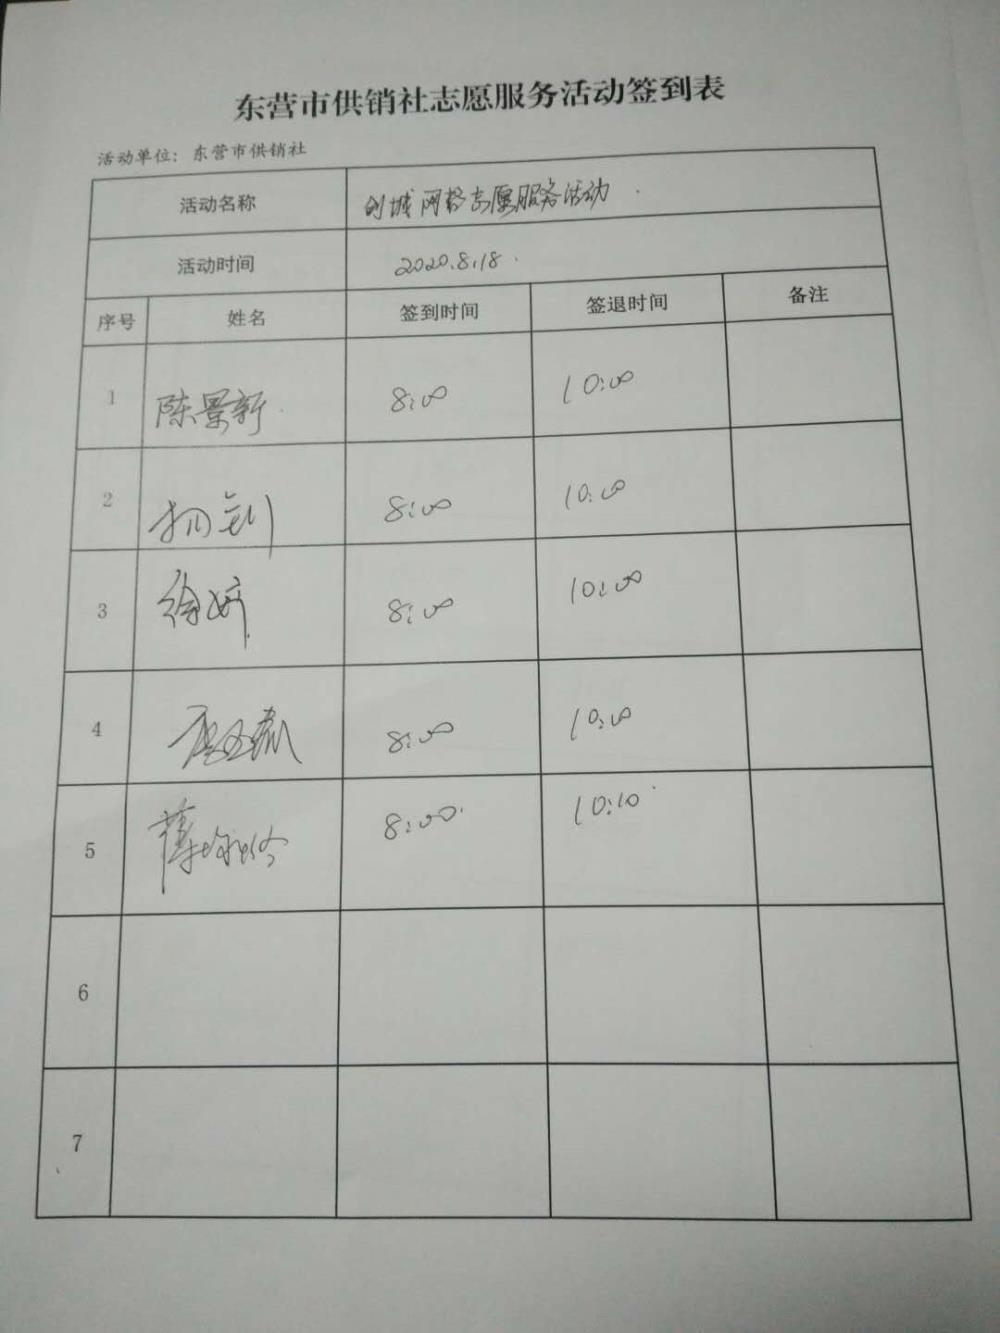 东营市供销社志愿服务活动签到表
活动单位：东营市供销社
活动名称 创城网格志愿服务活动
活动时间 2020.8.18.
序号 姓名 签到时间 签退时间 备注
1 陈景新 8:00 10:00
2 8:00 10:00
3 徐娇 8:00 10:00
4 8:00 10:00
5 薛 8:00 10:10
6
7